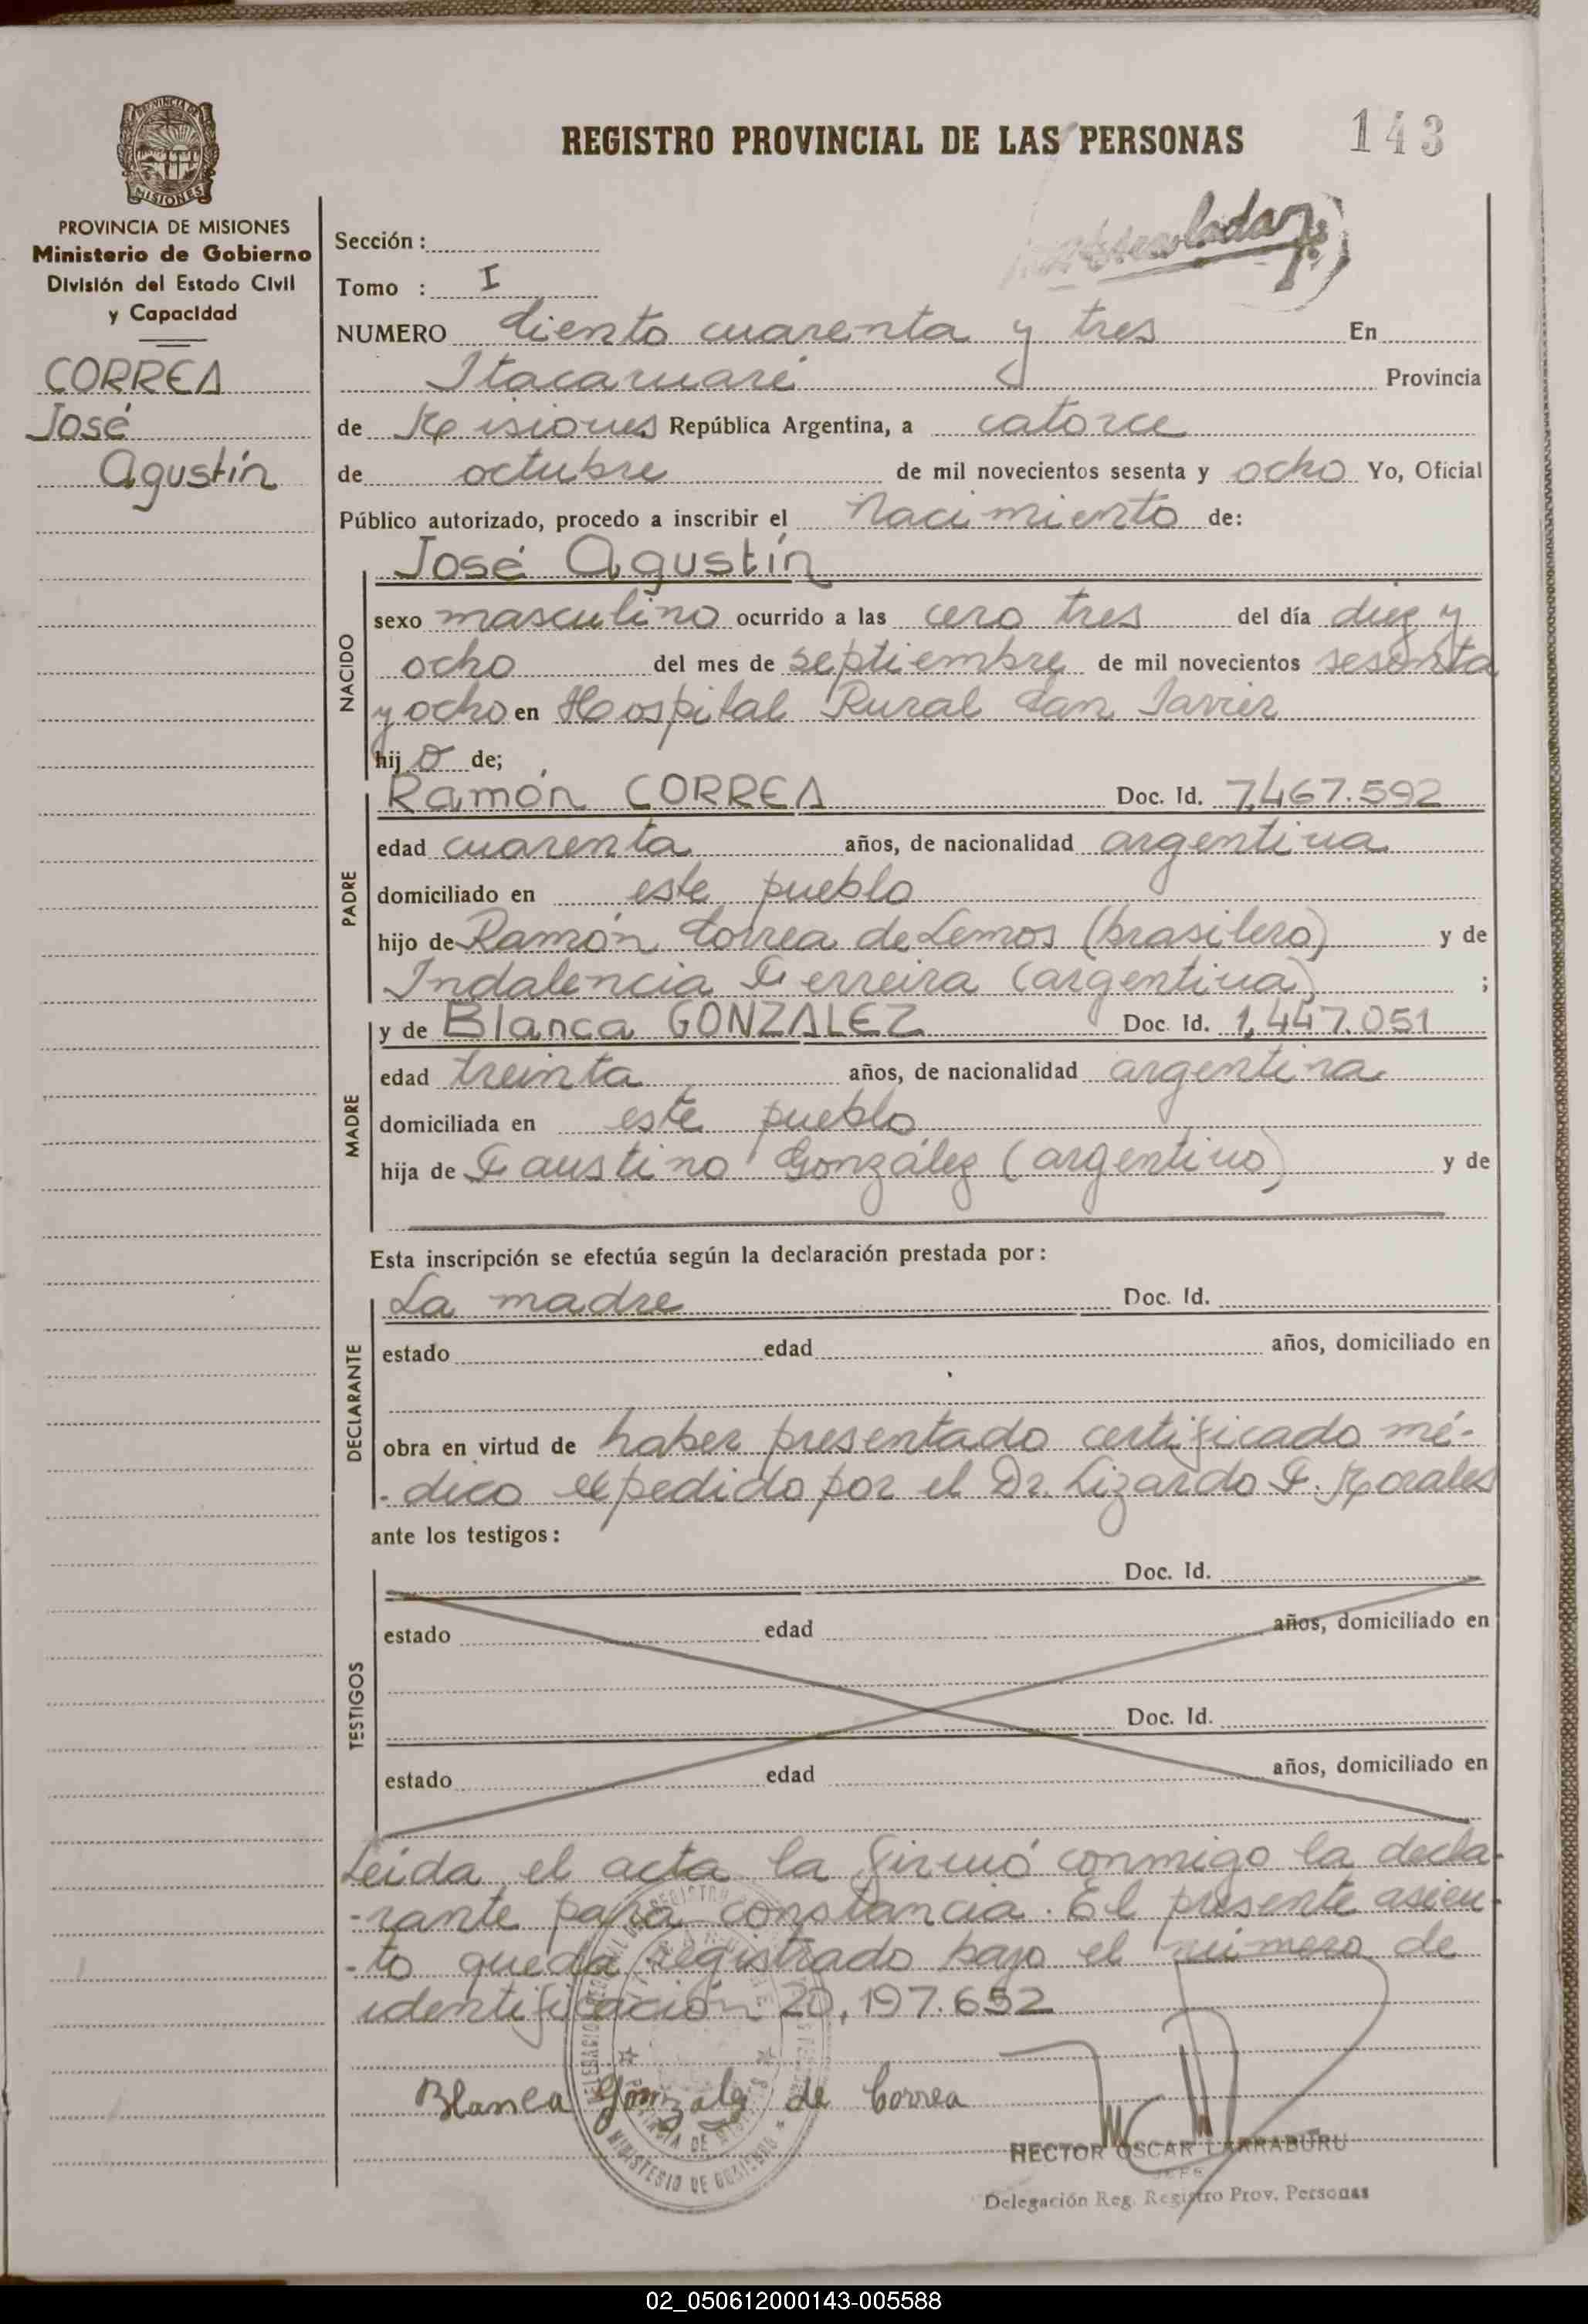 REGISTRO PROVINCIAL DE LAS PERSONAS
143
PROVINCIA DE MISIONES
Ministerio de Gobierno
División del Estado Civil
y Capacidad
CORREA
José
Agustín
Sección :
Tomo : I
NUMERO Ciento cuarenta y tres En
Itacaruaré Provincia
de Misiones República Argentina, a catorce
de octubre de mil novecientos sesenta y ocho Yo, Oficial
Público autorizado, procedo a inscribir el Nacimiento de:
José Agustín
NACIDO
sexo masculino ocurrido a las cero tres del día diez y
ocho del mes de septiembre de mil novecientos sesenta
y ocho en Hospital Rural San Javier
hijo de;
Ramón CORREA Doc. Id. 7,467.592
PADRE
edad cuarenta años, de nacionalidad argentina
domiciliado en este pueblo
hijo de Ramón Correa de Lemos (brasilero) y de
Indalencia Ferreira (argentina) ;
y de Blanca GONZALEZ Doc. Id. 1,447.051
MADRE
edad treinta años, de nacionalidad argentina
domiciliada en este pueblo
hija de Faustino González (argentino) y de
Esta inscripción se efectúa según la declaración prestada por :
DECLARANTE
La madre Doc. Id.
estado edad años, domiciliado en
obra en virtud de haber presentado certificado mé-
-dico expedido por el Dr. Lizardo F. Morales
ante los testigos :
TESTIGOS
Doc. Id.
estado edad años, domiciliado en
Doc. Id.
estado edad años, domiciliado en
Leída el acta la firmó conmigo la decla-
-rante para constancia. El presente asien-
-to queda registrado bajo el número de
identificación 20,197.652
Blanca Gonzalez de Correa
HECTOR OSCAR LARRABURU
JEFE
Delegación Reg. Registro Prov. Personas
02_050612000143-005588